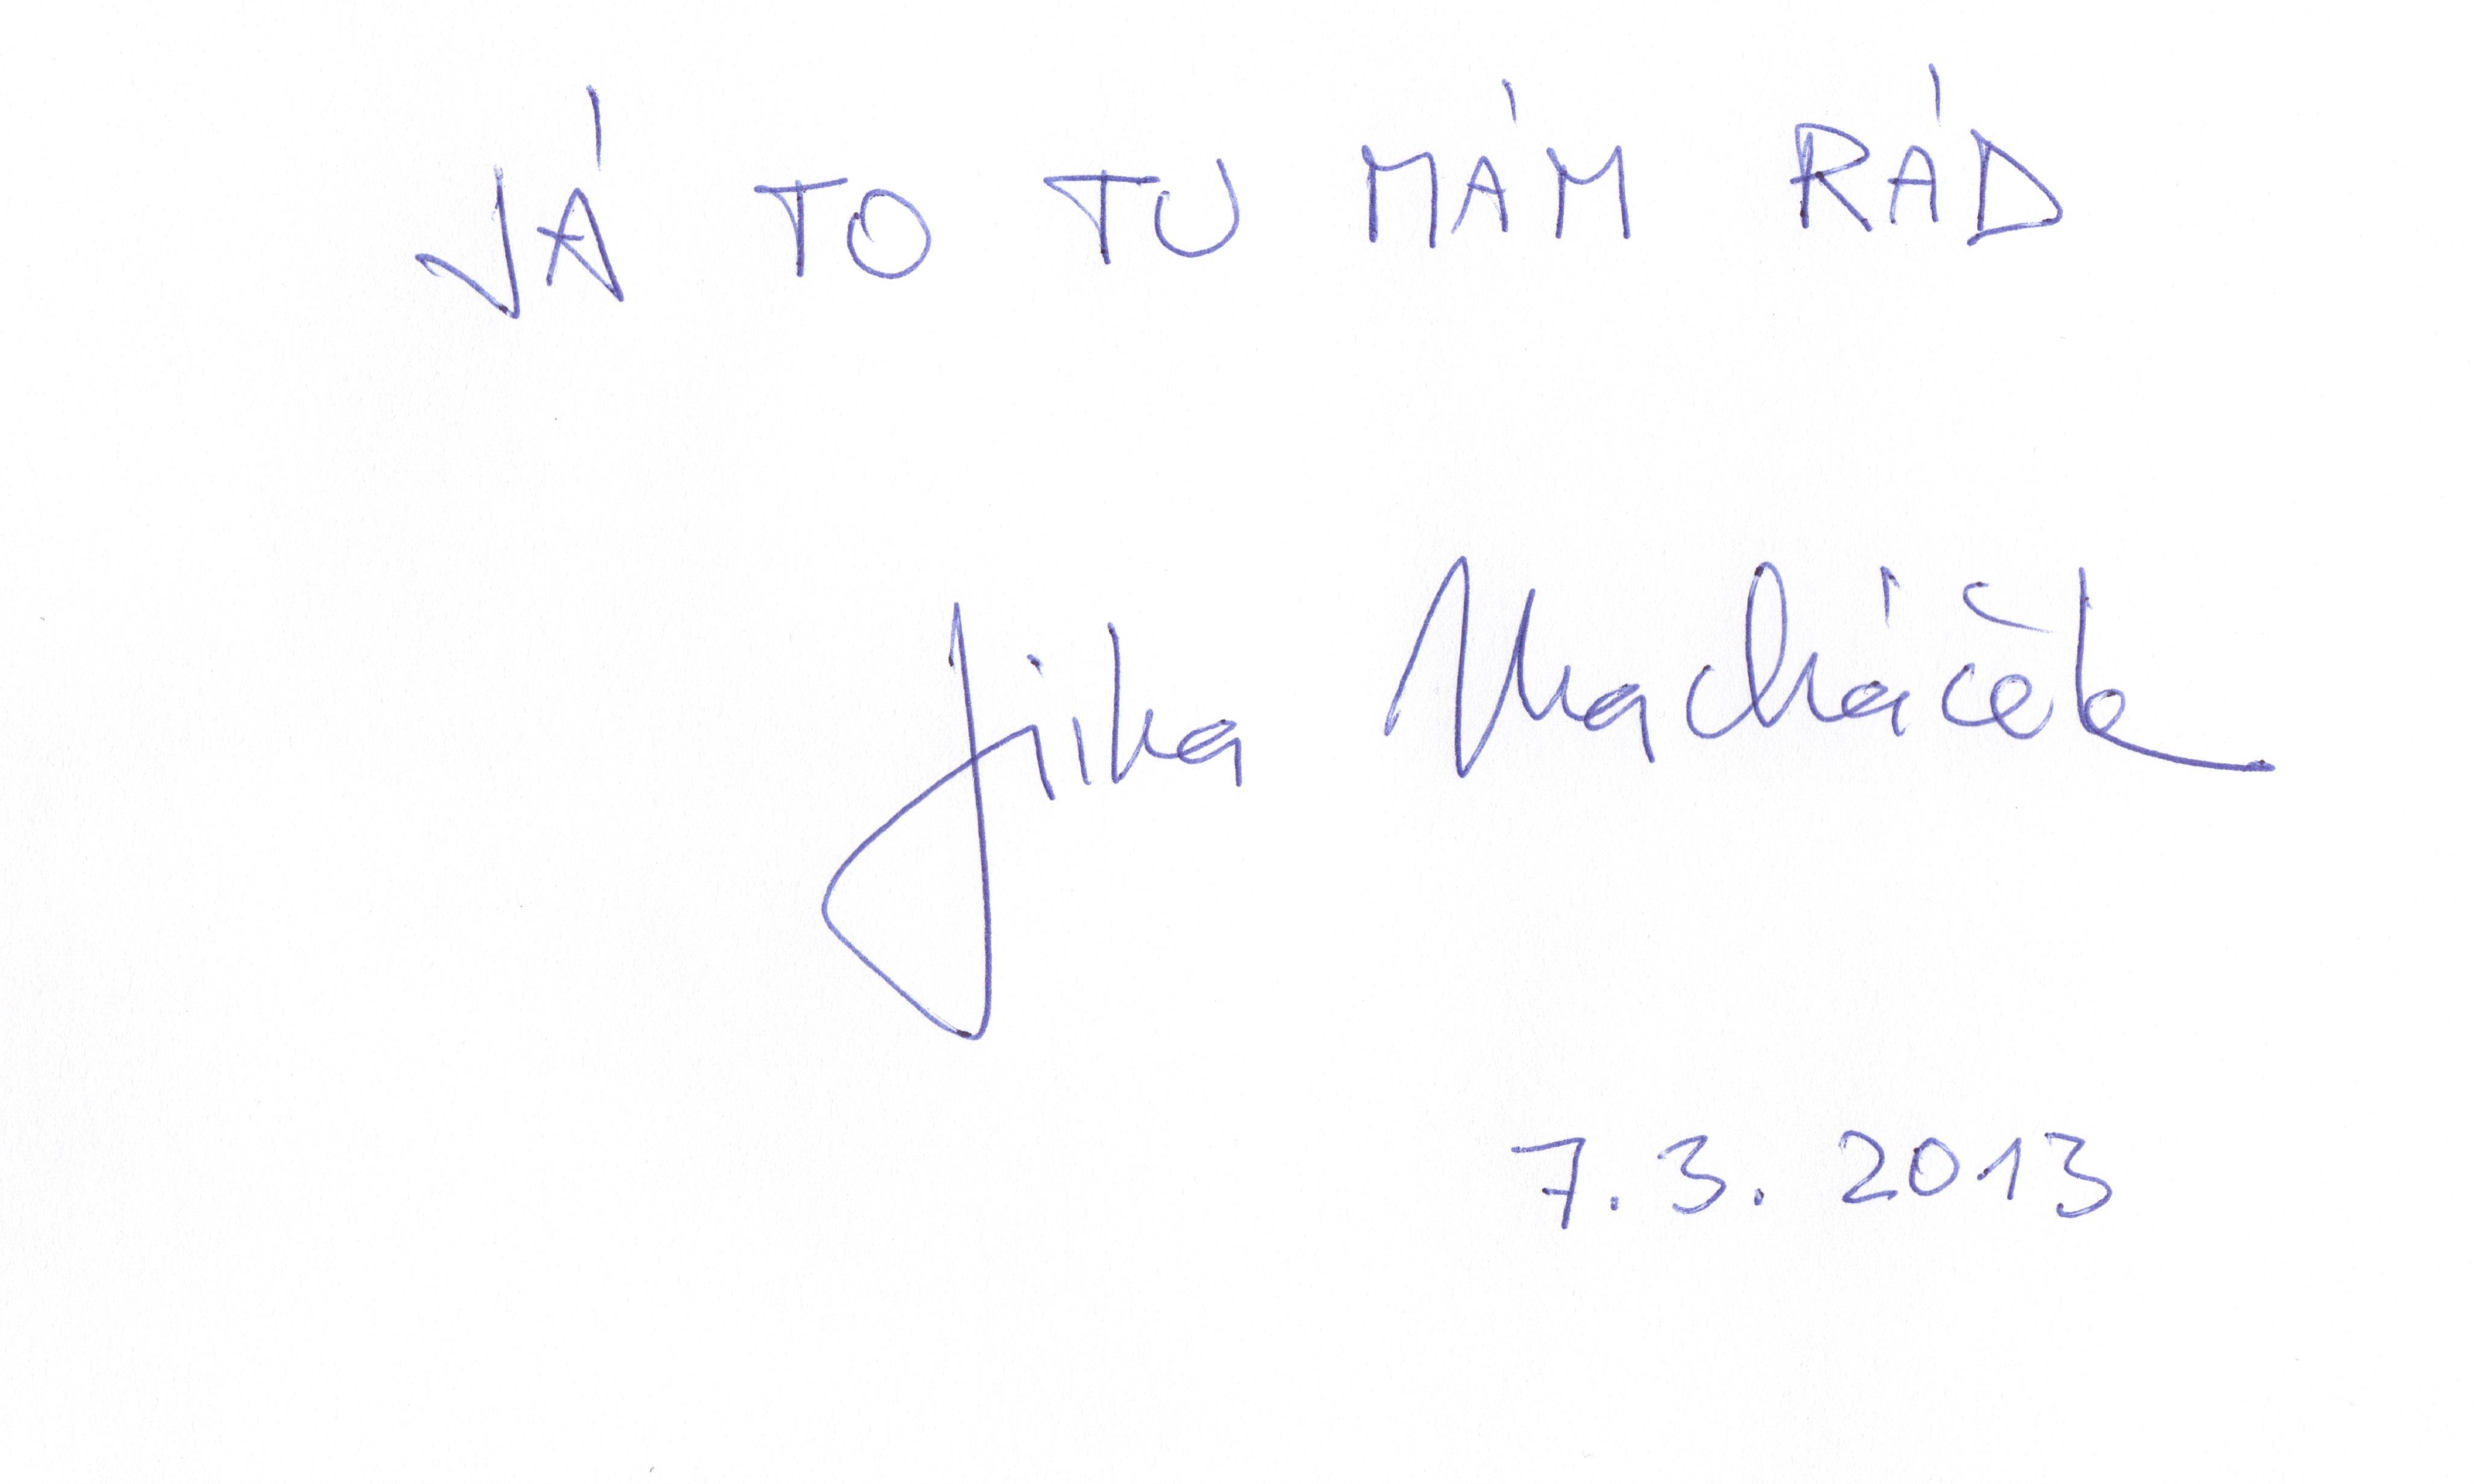 JÁ TO TU MÁM RÁD
Jirka Macháček
7.3. 2013